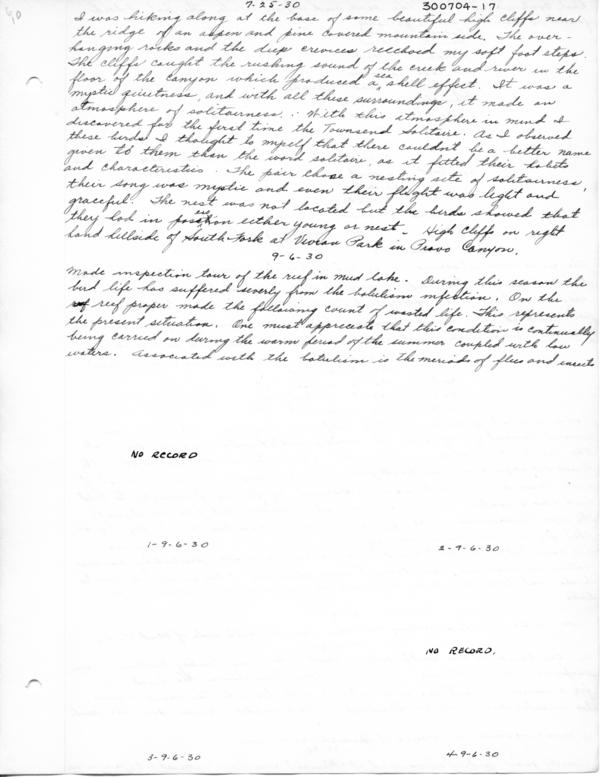 90
7-25-30
300704-17
I was hiking along at the base of some beautiful high cliffs near
the ridge of an aspen and pine covered mountain side. The over-
hanging rocks and the deep crevices reechoed my soft foot steps.
The cliffs caught the rushing sound of the creek and river in the
floor of the canyon which produced a sea shell effect. It was a
mystic quietness, and with all these surroundings, it made an
atmosphere of solitairness. With this atmosphere in mind I
discovered for the first time the Townsend Solitaire. As I observed
these birds I thought to myself that there couldn't be a better name
given to them than the word solitaire, as it fitted their habits
and characteristics. The pair chose a nesting site of solitairness,
their song was mystic and even their flight was light and
graceful. The nest was not located but the birds showed that
they had in possession either young or nest - High Cliffs on right
hand hillside of South Fork at Vivian Park in Provo Canyon.
9-6-30
Made inspection tour of the reef in mud lake. During this season the
bird life has suffered severly from the botulism infection. On the
reef proper made the following count of wasted life. This represents
the present situation. One must appreciate that this condition is continually
being carried on during the warm period of the summer coupled with low
waters. Associated with the botulism is the meriads of flies and insects
NO RECORD
1-9-6-30
2-9-6-30
NO RECORD.
3-9-6-30
4-9-6-30